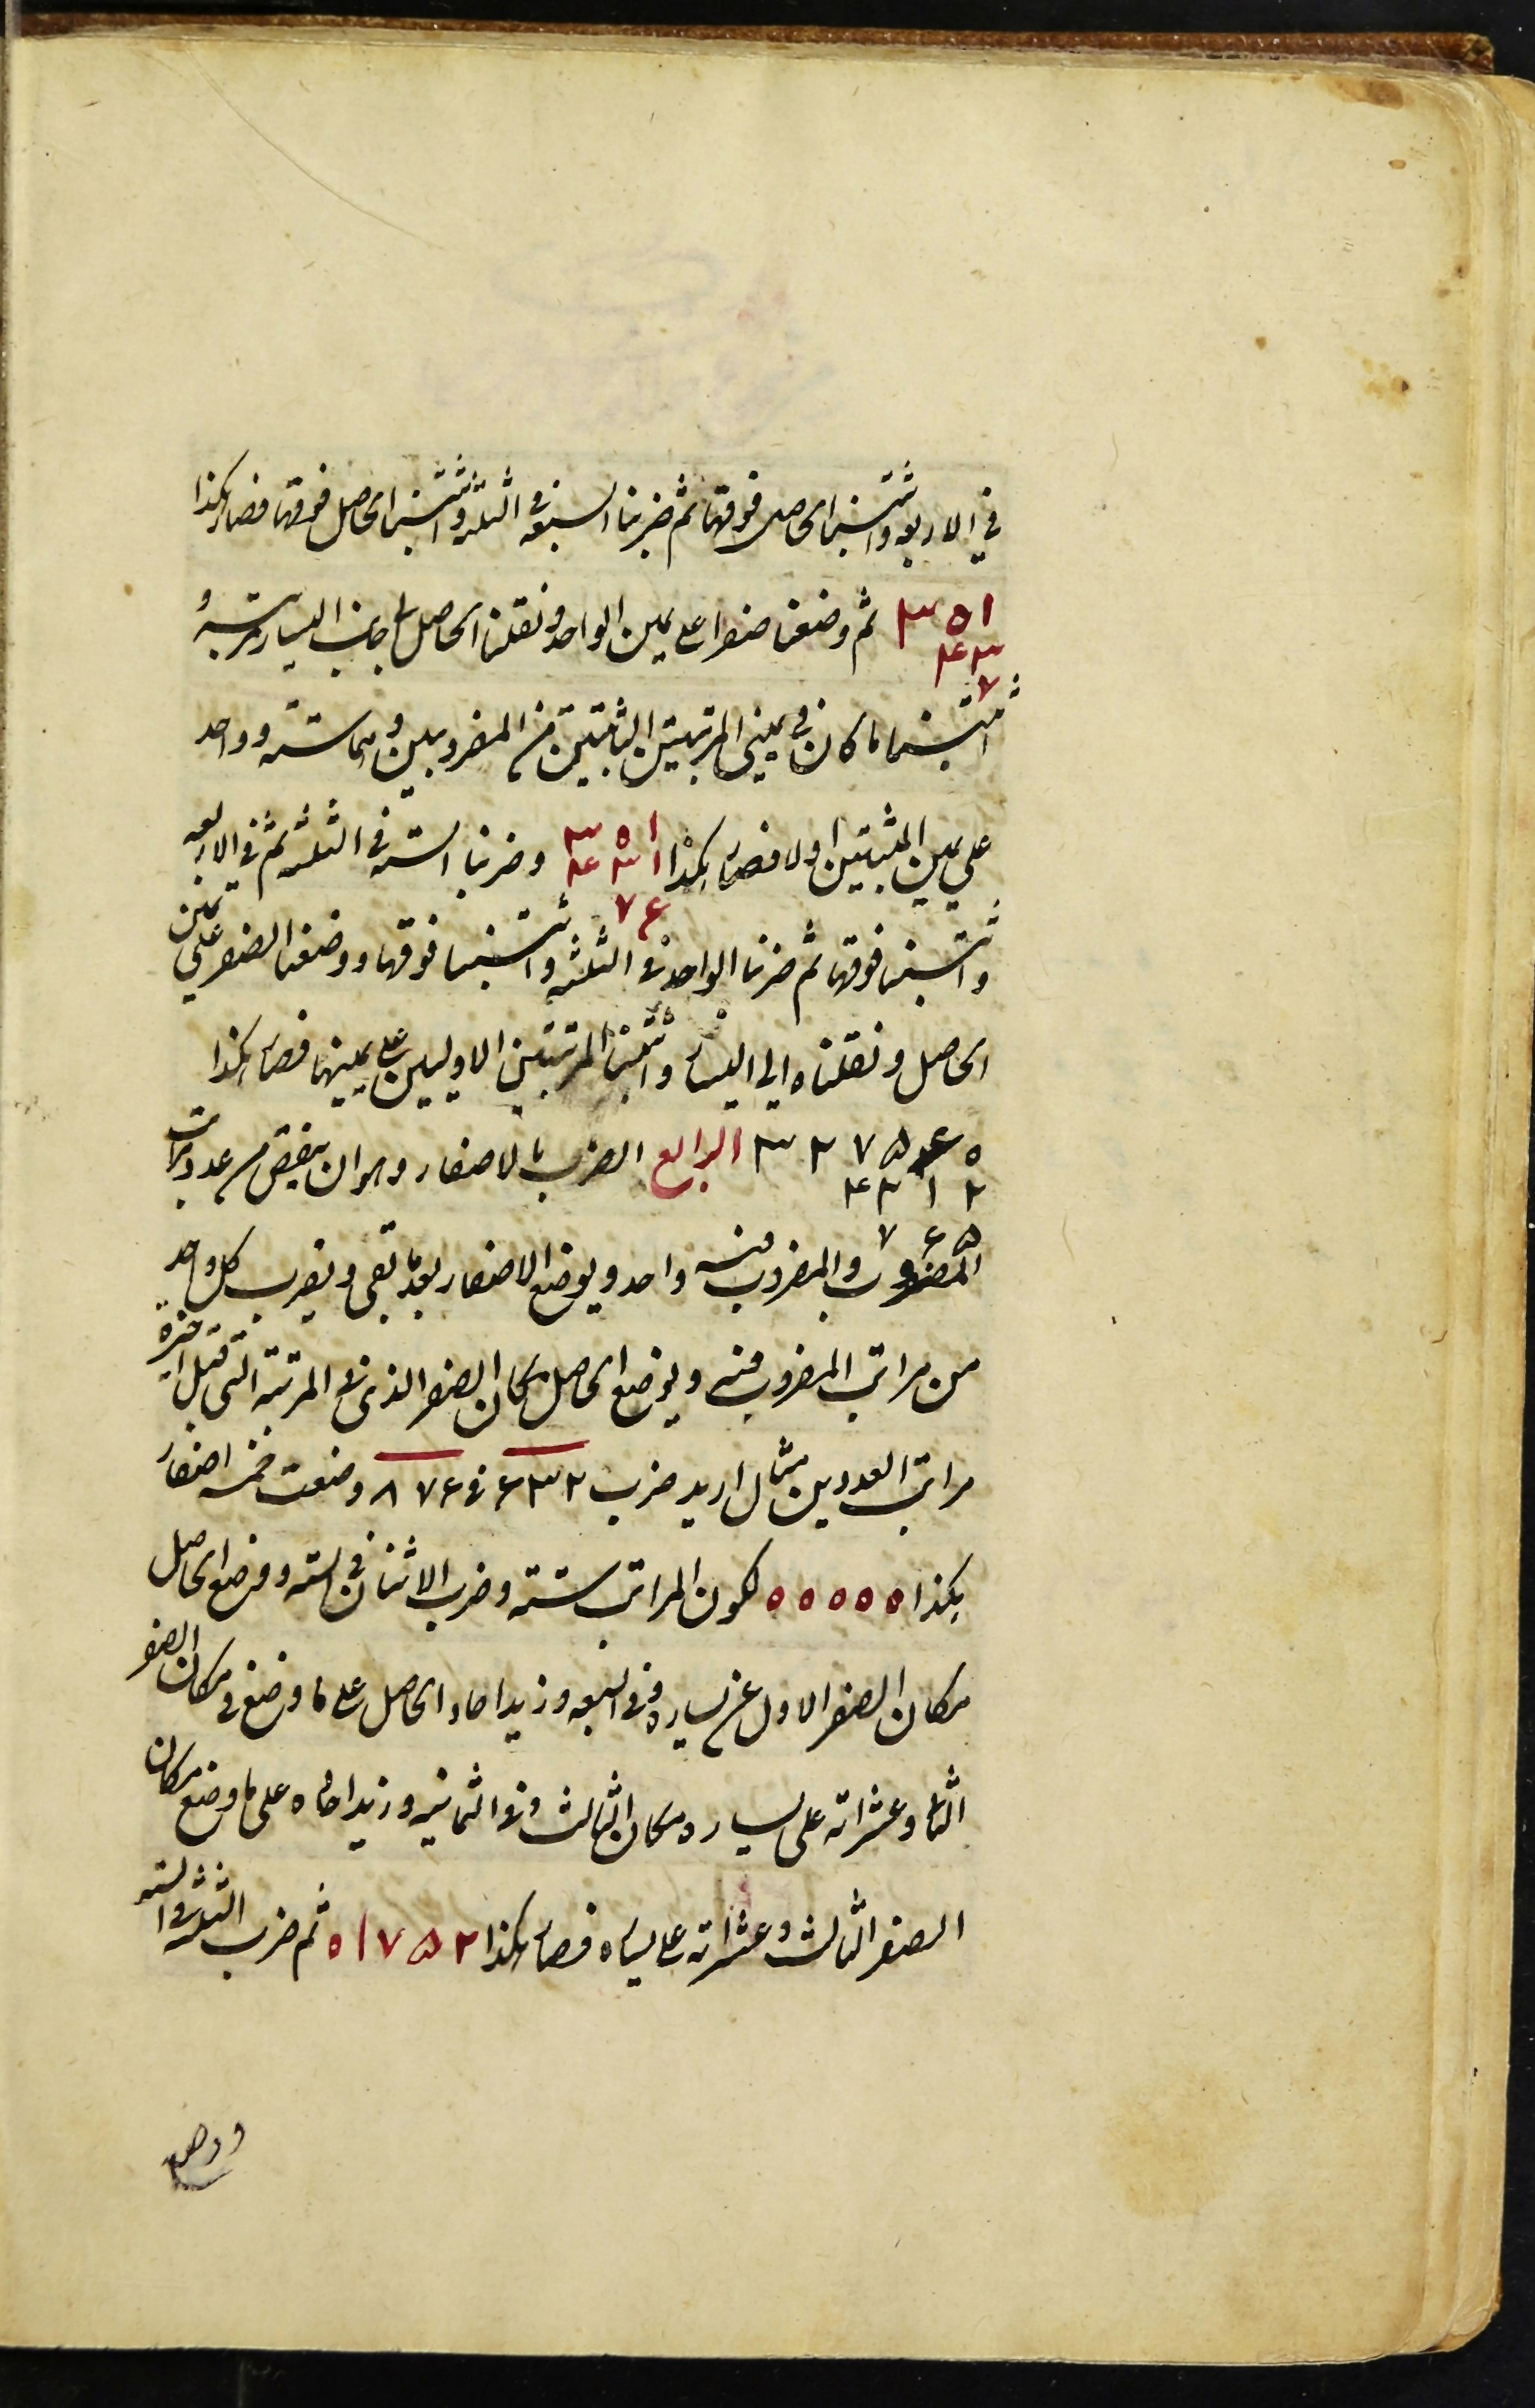 في الاربعه واثبتنا الحاصل فوقها ثم ضربنا السبعه في الثلثه واثبتنا الحاصل فوقها فصار هكذا
۳ ۵ ۱ ثم وضعنا صفرا على يمين الواحد ونقلنا الحاصل الى جانب اليسار بمرتبه و
۴ ۳
۷
اثبتنا ما كان في يميني المرتبتين الثابتتين من المضروبين وهما سته وواحد
على يمين المثبتتين اولا فصار هكذا ۳ ۵ ۱ وضربنا السته في الثلثه ثم في الاربعه
۴ ۳ ۱
۷ ۶
واثبتنا فوقها ثم ضربنا الواحد في الثلثه واثبتنا فوقها ووضعنا الصفر على يمين
الحاصل ونقلناه الى اليسار واثبتنا المرتبتين الاوليين على يمينها فصار هكذا
۳ ۲ ۷ ۵ ۶ ۰ الرابع الضرب بالاصفار وهو ان ينقص من عدد مراتب
۴ ۳ ۱ ۲
۷ ۶ ۵
المضروب والمضروب فيه واحد ويوضع الاصفار بعد ما بقى ويضرب كل واحد
من مراتب المضروب فيه ويوضع الحاصل مكان الصفر الذى في المرتبة التى قبل اخيرة
مراتب العددين مثال اريد ضرب ۶۳۲ في ۸۷۶ وضعت خمسه اصفار
هكذا ۰ ۰ ۰ ۰ ۰ لكون المراتب سته وضرب الاثنان في السته ووضع الحاصل
مكان الصفر الاول عن يساره وفي السبعه وزيد احاد الحاصل على ما وضع في مكان الصفر
الثانى وعشراته على يساره مكان الثالث وفي الثمانيه وزيد احاده على ما وضع مكان
الصفر الثالث وعشراته على يساره فصار هكذا ۰۱۷۵۲ ثم ضرب الثلثه في السته
ووضع